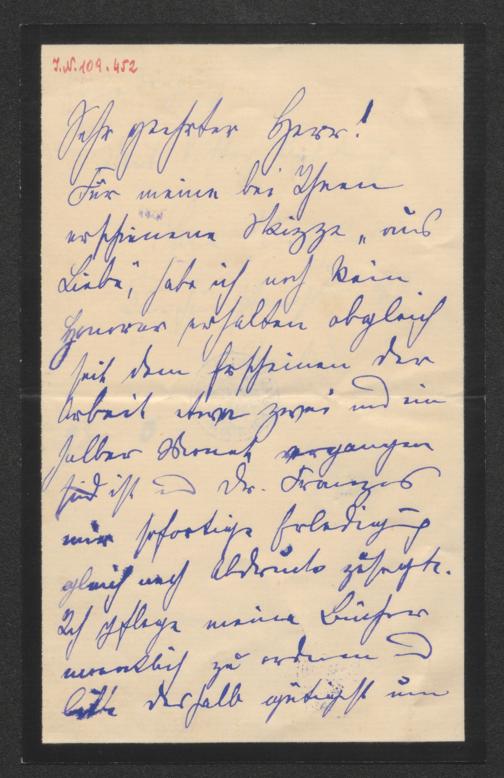 I.N. 109.452
Sehr geehrter Herr!
Für meine bei Ihnen
erschienene Skizze „aus
Liebe“, habe ich noch kein
Honorar erhalten obgleich
seit dem Erscheinen der
Arbeit etwa zwei und ein
halber Monat vergangen
sind ist und Dr. Franzos
mir sofortige Erledigung
gleich nach Abdruck zusagte.
Ich pflege meine Bücher
monatlich zu ordnen und
bitte deshalb gütigst um